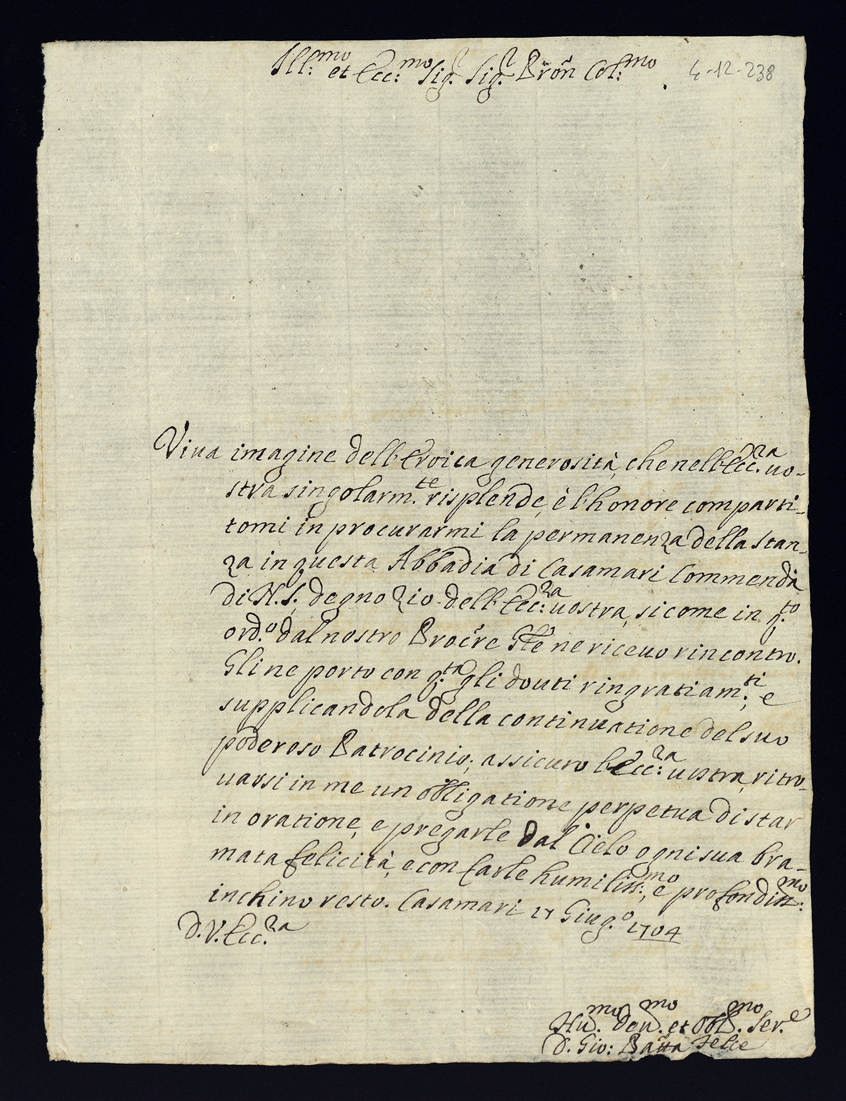 Ill:mo et Ecc:mo Sig.r Sig.r Pron Col:mo
4-12-238
Viva imagine dell'Eroica generosità, che nell'Ecc:za vo-
stra singolarm.te risplende, è l'honore comparti-
tomi in procurarmi la permanenza della stan-
za in questa Abbadia di Casamari Commenda
di N.S. degno Zio dell'Ecc:za vostra, sicome in q.to
ord.o dal nostro Prore Gñle ne ricevo rincontro.
Gline porto con q.ta gli dovuti ringratiam:ti, e
supplicandola della continuatione del suo
poderoso Patrocinio; assicuro l'Ecc:za vostra, ritro-
varsi in me un obligatione perpetua di star
in oratione, e pregarle dal Cielo ogni sua bra-
mata felicità, e con farle humiliss:mo, e profondiss:mo
inchino resto. Casamari 17 Giug.o 1704
D.V.Ecc.za
Hu.mo Dev.mo et Obl.mo Ser.e
D. Gio: Batta Felie